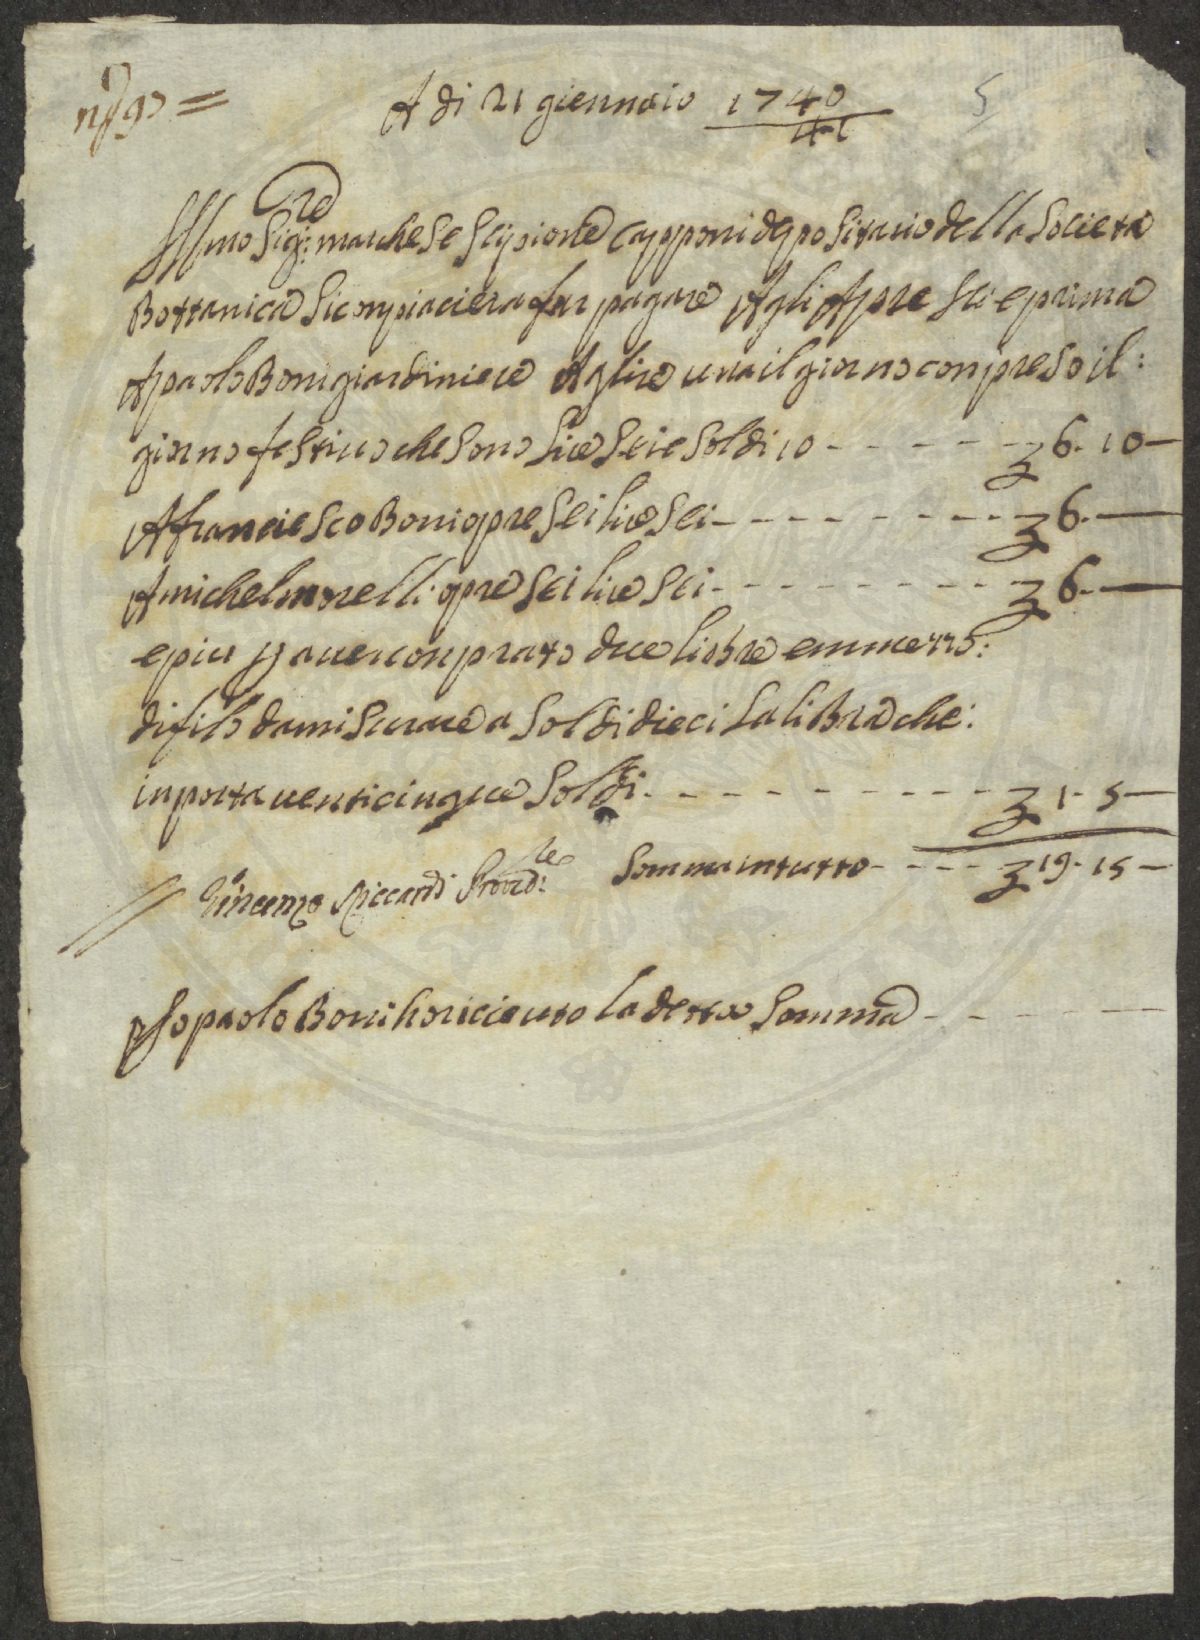 n.º 93 =
A di 21 giennaio 1740/41
5
Ill.mo Sig.re marchese Scipione Capponi depositario della Società
Bottanica Si conpiacierà far pagare Agli Apre Sti e prima
A paolo Boni giardiniere A lire una il giorno conpreso il:
giorno festiuo che sono lire Sei e Soldi 10 - - - - - - ₤ 6. 10 —
A franciesco Boni opre Sei lire Sei - - - - - - - - - ₤ 6. —
A michel morelli opre Sei lire Sei - - - - - - - - - ₤ 6. —
e piu p auer conprato due libre emmezzo:
di filo da misurare a Soldi dieci la libra che:
inporta uenticinque Soldi - - - - - - - - - ₤ 1. 5 —
Somma in tutto - - - - ₤ 19. 15 —
Vincenzo Riccardi Proved.re
Io paolo Boni ho riceuuto la detta Somma - - - - - -